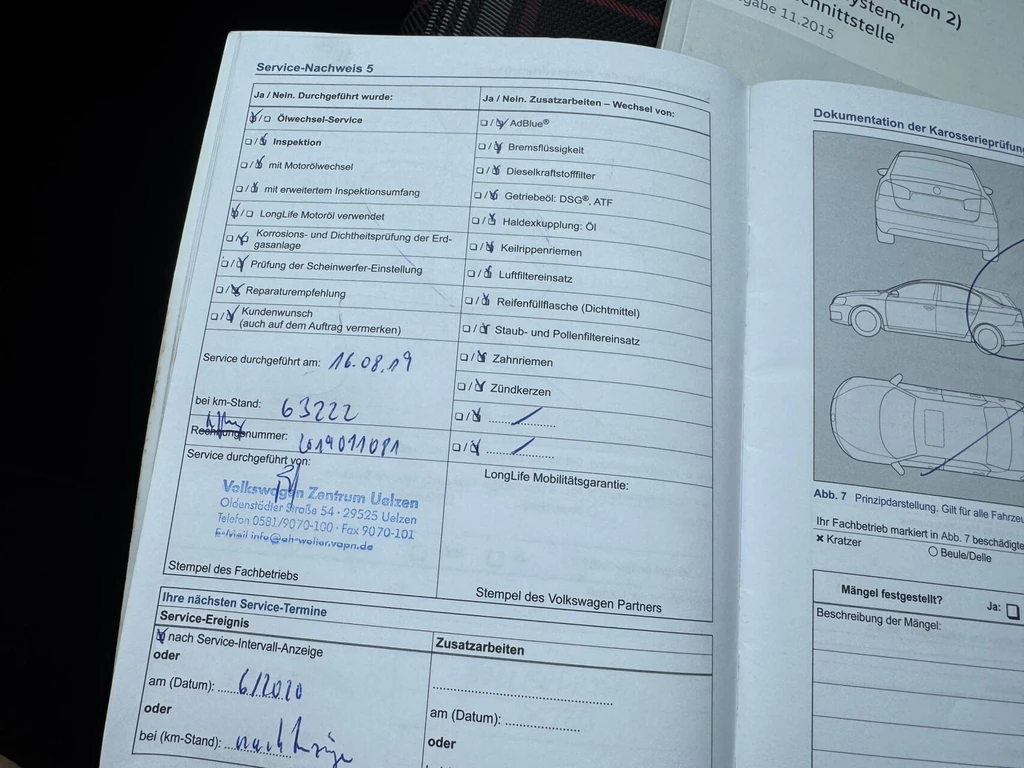 ation 2)
ystem,
chnittstelle
gabe 11.2015
Service-Nachweis 5
Ja / Nein. Durchgeführt wurde:
Ölwechsel-Service
Inspektion
mit Motorölwechsel
mit erweitertem Inspektionsumfang
LongLife Motoröl verwendet
Korrosions- und Dichtheitsprüfung der Erd-
gasanlage
Prüfung der Scheinwerfer-Einstellung
Reparaturempfehlung
Kundenwunsch
(auch auf dem Auftrag vermerken)
Ja / Nein. Zusatzarbeiten – Wechsel von:
AdBlue®
Bremsflüssigkeit
Dieselkraftstofffilter
Getriebeöl: DSG®, ATF
Haldexkupplung: Öl
Keilrippenriemen
Luftfiltereinsatz
Reifenfüllflasche (Dichtmittel)
Staub- und Pollenfiltereinsatz
Zahnriemen
Zündkerzen
Service durchgeführt am: 16.08.19
bei km-Stand: 63222
Rechnungsnummer:
Service durchgeführt von:
Volkswagen Zentrum Uelzen
Oldenstädter Straße 54 · 29525 Uelzen
Telefon 0581/9070-100 · Fax 9070-101
Stempel des Fachbetriebs
LongLife Mobilitätsgarantie:
Stempel des Volkswagen Partners
Ihre nächsten Service-Termine
Service-Ereignis
nach Service-Intervall-Anzeige
oder
am (Datum): 6/2020
oder
bei (km-Stand): nach Anzeige
Zusatzarbeiten
am (Datum):
oder
Dokumentation der Karosserieprüfung
Abb. 7 Prinzipdarstellung. Gilt für alle Fahrze
Ihr Fachbetrieb markiert in Abb. 7 beschädigte
× Kratzer
Beule/Delle
Mängel festgestellt?
Ja:
Beschreibung der Mängel: